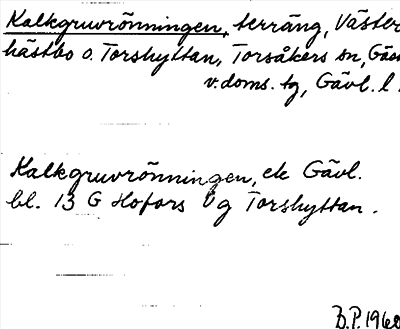 Kalkgruvrönningen, terräng, Väster
hästbo o. Torshyttan, Torsåkers sn, Gäs
v. doms. tg, Gävl. l.
Kalkgruvrönningen, ek Gävl.
bl. 13 G Hofors 0 g Torshyttan.
B.P. 1968